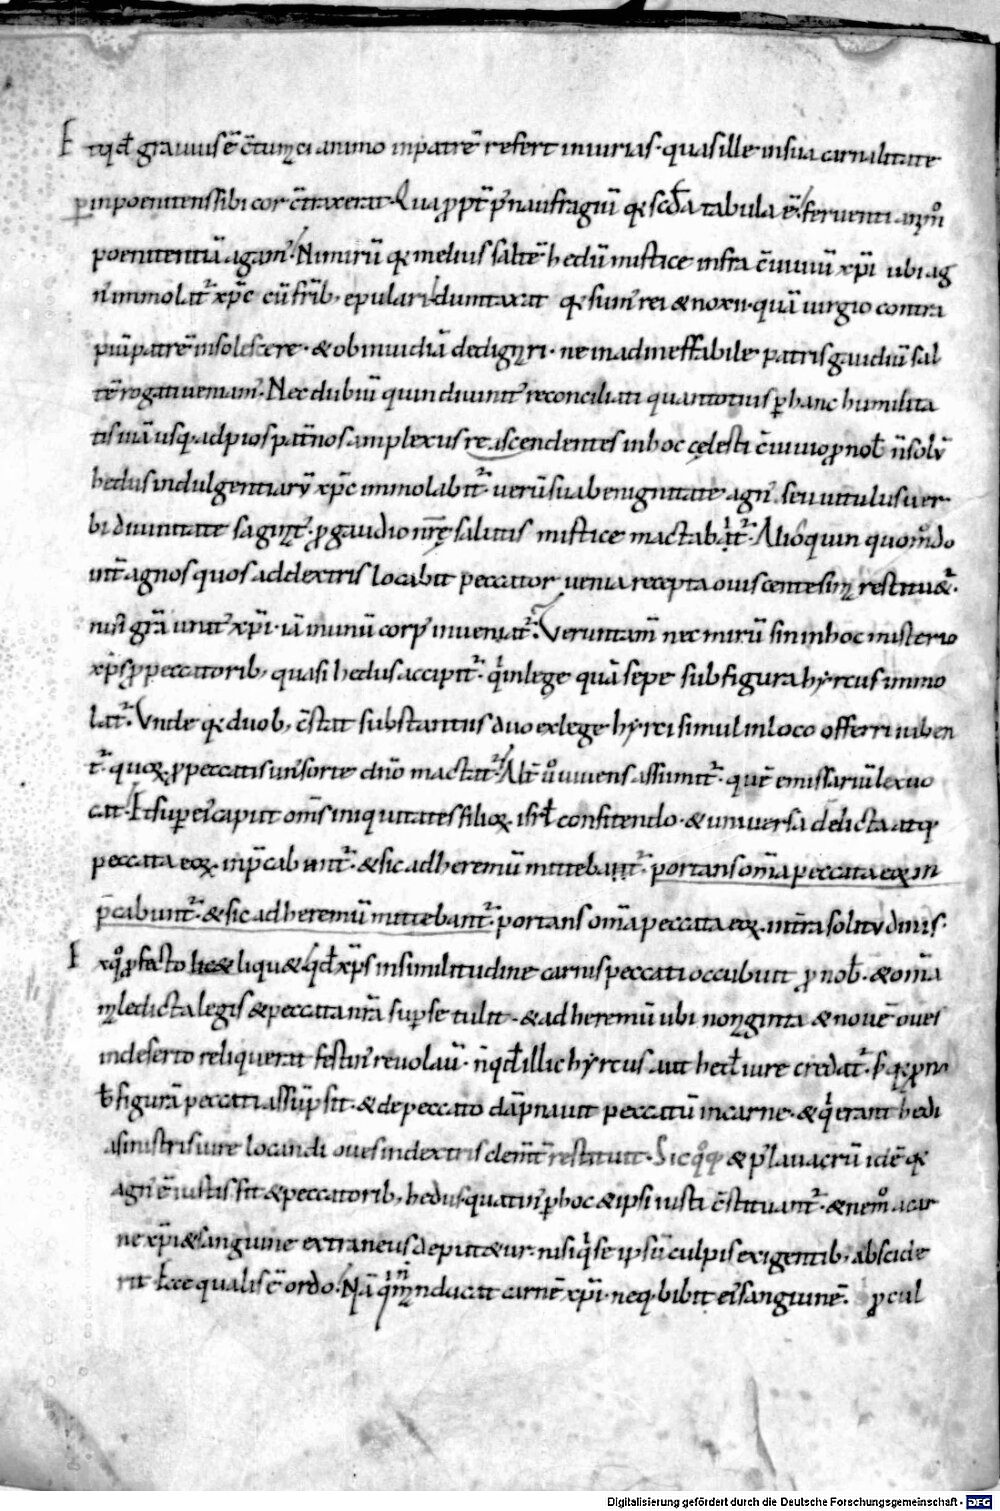 Et qd̄ gravius ē c̄tumaci animo in patrē refert iniurias · quas ille in sua carnalitate
p̱ inpoenitens sibi cor c̄traxerat · Quapropt̄ p' naufragiū qa scd̄a tabula ē · ferventi animo
poenitentiā agam' · Nimirū qa melius saltē hedū mistice infra c̄viviū xp̄i ubi ag
n' immolat̄ xp̄c cū fr̄ib; epulari dumtaxat qa sum' rei & noxii · quā virgio contra
piū patrē insolescere · & ob invidiā dedignari · ne inad ineffabile patris gaudiū sal
tē rogati veniam' · Nec dubiū quin divinit' reconciliati quantotius p̱ hanc humilita
tis viā usq; ad pios patn̄os amplexus reascendentes in hoc celesti c̄vivio pro nob̄ n̄ solū
hedus indulgentiarū xp̄c immolabit̄ · verū sua benignitate agn' seu vitulus ver
bi divinitate saginat' · pro gaudio nrē salutis mistice mactabit̄ · Alioquin quomodo
int̄ agnos quos ad dextris locabit peccator venia recepta ovis centesima restitu&̄ ·
nisi grā unit' xp̄i · iā in unū corp' inveniat̄ · Veruntam̄ nec mirū si in in hoc misterio
xp̄s pro peccatorib; quasi hedus accipit̄ · qi in lege quā sepe sub figura hyrcus immo
lat̄ · Unde qa duob; c̄stat substantiis duo ex lege hyrci simul in loco offerri iuben
t̄ · quoꝝ pro peccatis un' sorte dn̄o mactat̄ · Alt̄ v̊ vivens assumit̄ · quē emissariū lex vo
cat · Et super ei' caput om̄s iniquitates filioꝝ isrl̄ confitendo · & universa delicta atq;
peccata eoꝝ inp̄cabant̄ · & sic ad heremū mittebant̄ · portans om̄a peccata eoꝝ in
p̄cabunt̄ · & sic ad heremū mittebant̄ · portans om̄a peccata eoꝝ · in trā solitudinis ·
Ex quo profecto liqu& · qd̄ xp̄s in similitudine carnis peccati occubuit pro nob̄ · & om̄a
maledicta legis & peccata nrā super se tulit · & ad heremū ubi nonaginta & novē oves
in deserto reliquerat festin' revolavit · n̄ qd̄ illic hyrcus aut hed' iure credat̄ · s; qa pro no
b̄ figurā peccati assūpsit · & de peccato dāpnavit peccatū in carne · & qi erant hedi
a sinistris iure locandi oves in dextris clement̄ restituit · Sicq; & p' lavacrū idē qa
agn' ē iustis fit & peccatorib; hedus quatin' p̱ hoc & ipsi iusti c̄stituant̄ · & nemo a car
ne xp̄i & sanguine extraneus deput&ur · nisi qi se ipsū culpis exigentib; abscide
rit · Ecce qualis ē ordo · Nā qi n̄ manducat carnē xp̄i · neq; bibit ei' sanguinē · procul